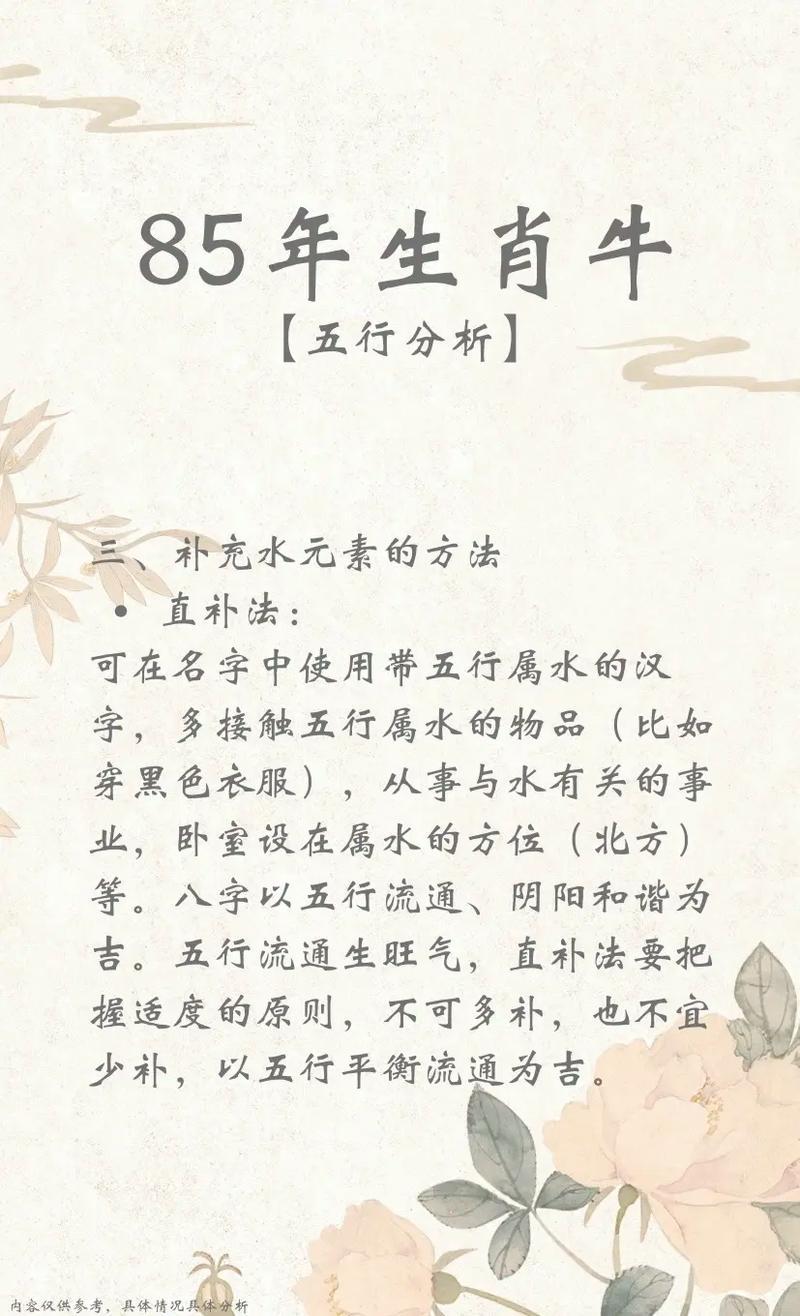 85年生肖牛
【五行分析】
三、补充水元素的方法
• 直补法：
可在名字中使用带五行属水的汉
字，多接触五行属水的物品（比如
穿黑色衣服），从事与水有关的事
业，卧室设在属水的方位（北方）
等。八字以五行流通、阴阳和谐为
吉。五行流通生旺气，直补法要把
握适度的原则，不可多补，也不宜
少补，以五行平衡流通为吉。
内容仅供参考，具体情况具体分析